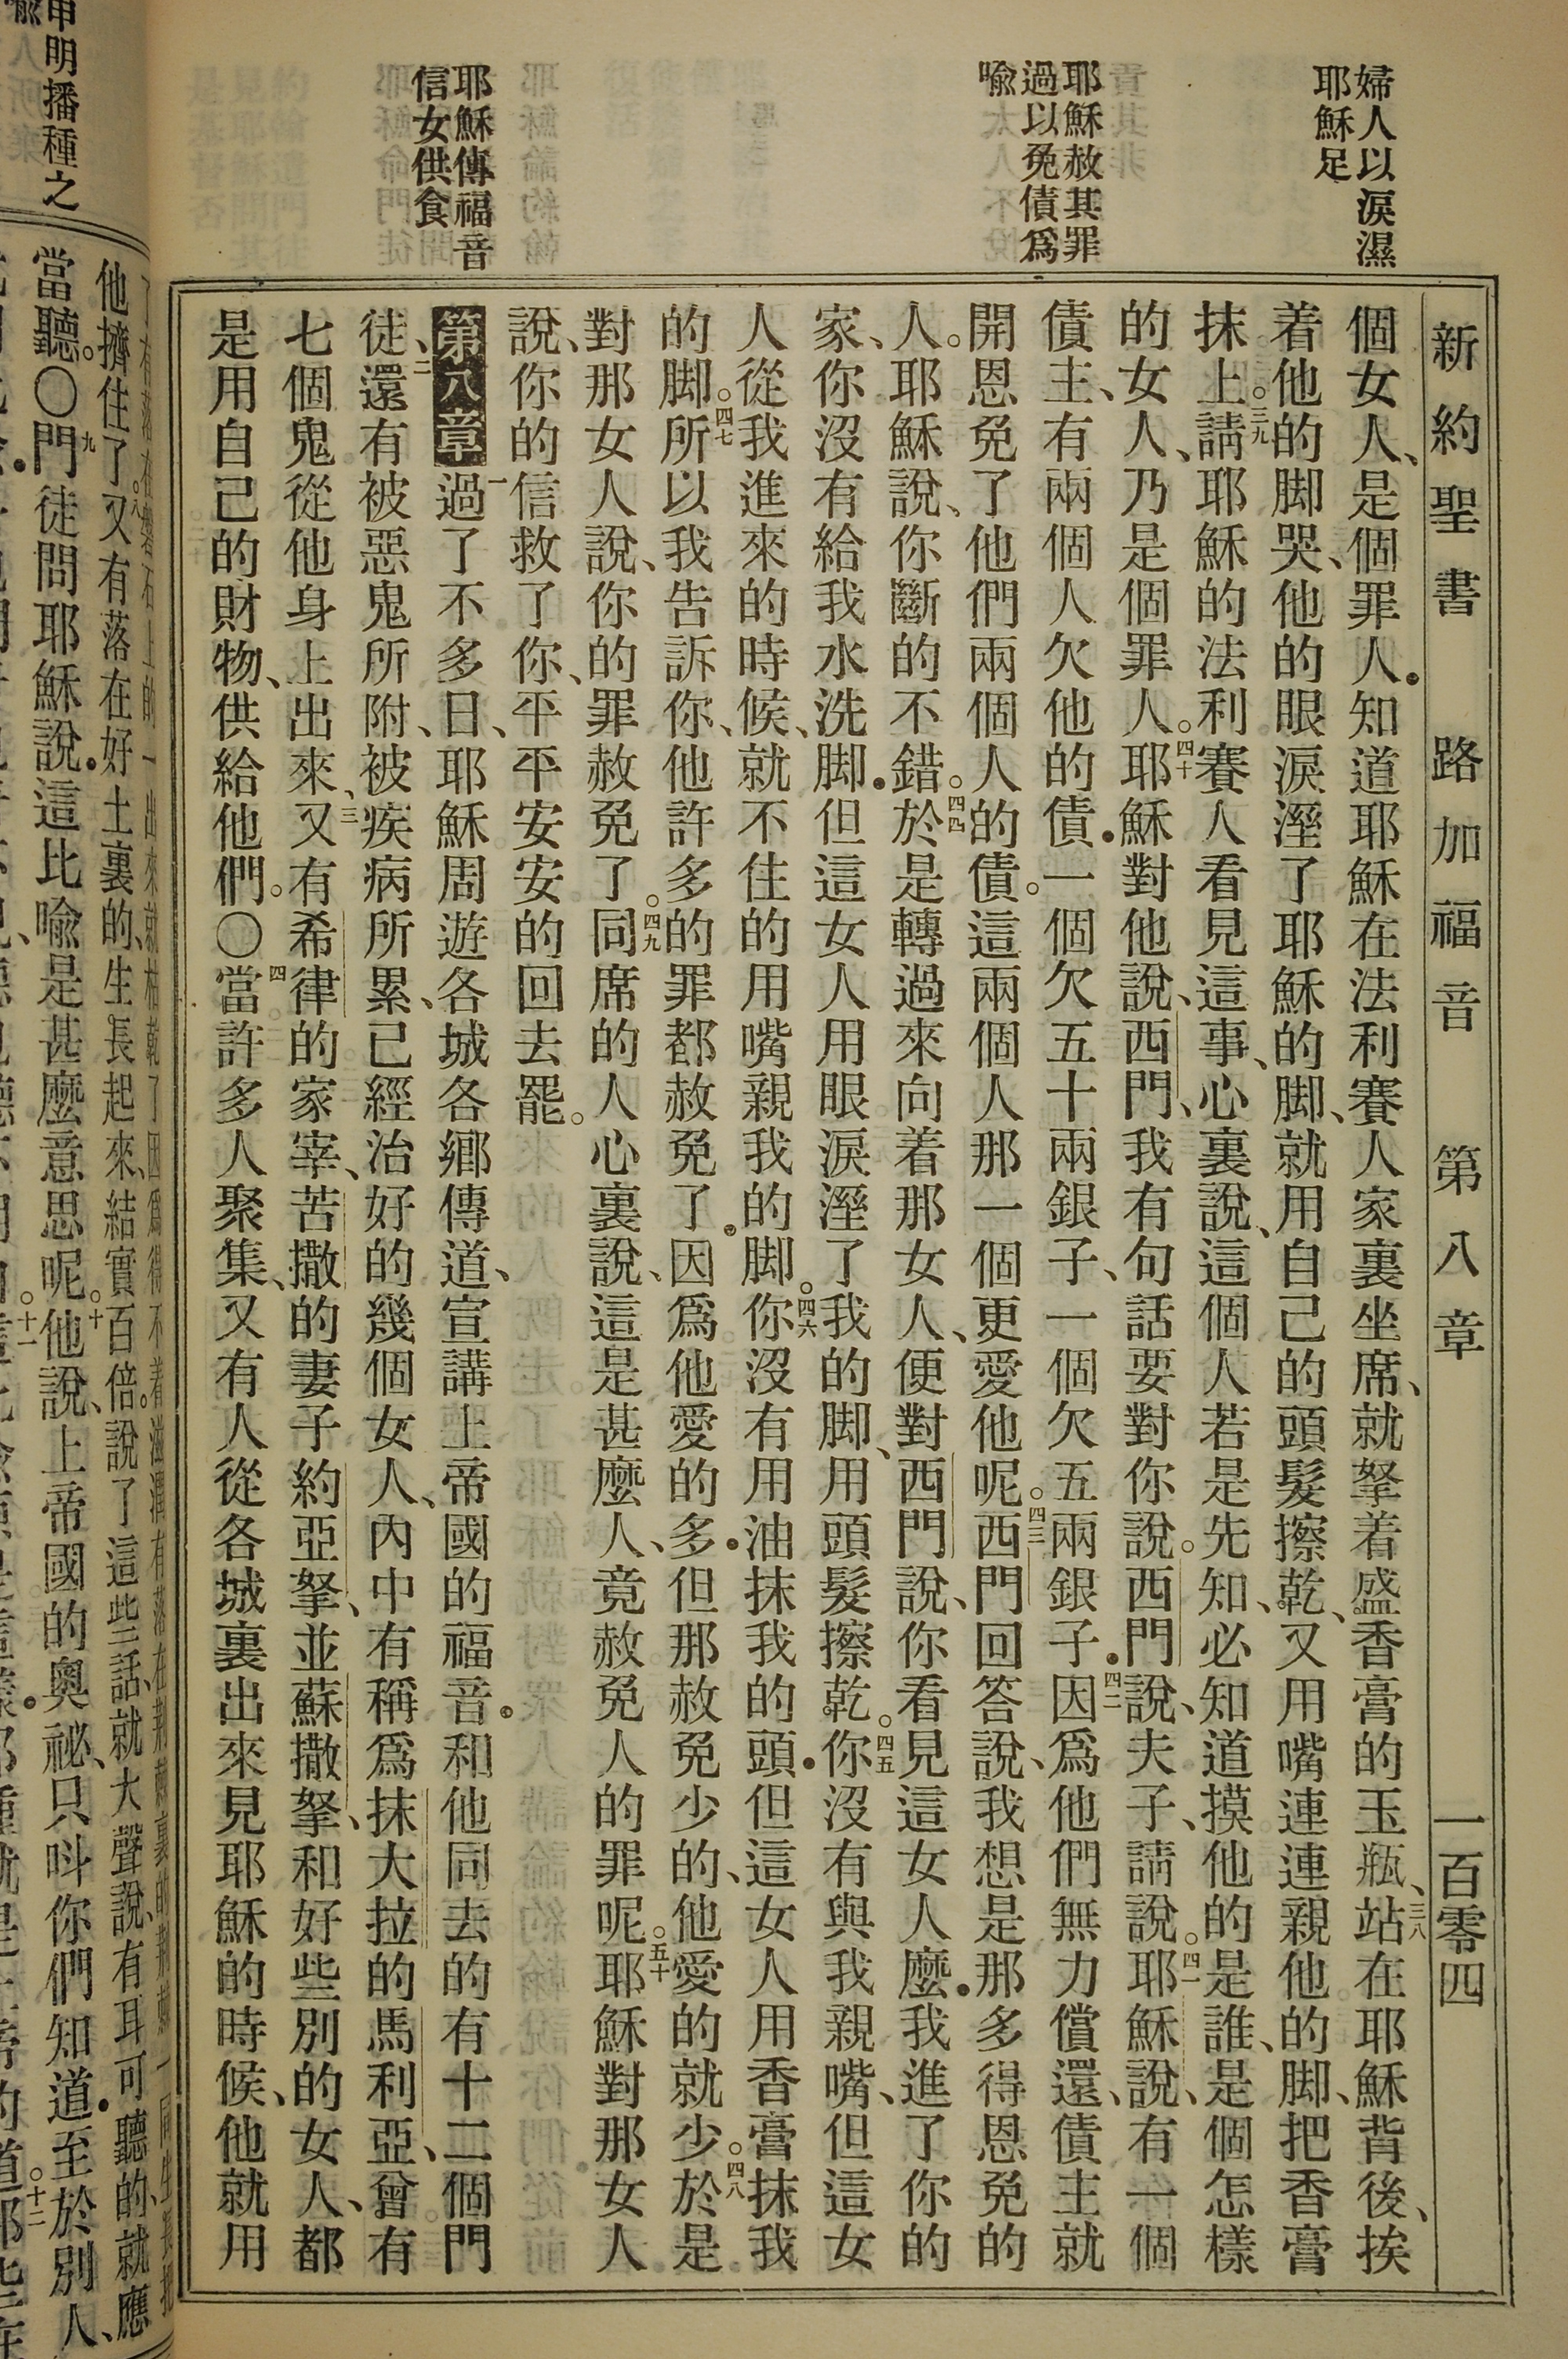 新約聖書 路加福音 第八章 一百零四
婦人以淚濕
耶穌足
耶穌赦其罪
過以免債爲
喻
耶穌傳福音
信女供食
個女人、是個罪人．知道耶穌在法利賽人家裏坐席、就拏着盛香膏的玉瓶、三八站在耶穌背後、挨
着他的脚哭、他的眼淚溼了耶穌的脚、就用自己的頭髮擦乾、又用嘴連連親他的脚、把香膏
抹上。三九請耶穌的法利賽人看見這事、心裏說、這個人若是先知、必知道摸他的是誰、是個怎樣
的女人、乃是個罪人。四十耶穌對他說、西門、我有句話要對你說。西門說、夫子、請說。四一耶穌說、有一個
債主、有兩個人欠他的債．一個欠五十兩銀子、一個欠五兩銀子．四二因爲他們無力償還、債主就
開恩免了他們兩個人的債。這兩個人那一個更愛他呢。四三西門回答說、我想是那多得恩免的
人。耶穌說、你斷的不錯。四四於是轉過來向着那女人、便對西門說、你看見這女人麽．我進了你的
家、你沒有給我水洗脚．但這女人用眼淚溼了我的脚、用頭髮擦乾。四五你沒有與我親嘴、但這女
人從我進來的時候、就不住的用嘴親我的脚。四六你沒有用油抹我的頭．但這女人用香膏抹我
的脚。四七所以我告訴你、他許多的罪都赦免了．因爲他愛的多．但那赦免少的、他愛的就少。四八於是
對那女人說、你的罪赦免了。四九同席的人心裏說、這是甚麽人、竟赦免人的罪呢。五十耶穌對那女人
說、你的信救了你、平平安安的回去罷。
第八章 一過了不多日、耶穌周遊各城各鄉傳道、宣講上帝國的福音．和他同去的有十二個門
徒、二還有被惡鬼所附、被疾病所累、已經治好的幾個女人、內中有稱爲抹大拉的馬利亞、曾有
七個鬼從他身上出來、三又有希律的家宰、苦撒的妻子約亞拏、並蘇撒拏、和好些別的女人、都
是用自己的財物、供給他們。〇四當許多人聚集、又有人從各城裏出來見耶穌的時候、他就用
申明播種之
他擠住了。八又有落在好土裏的、生長起來、結實百倍。說了這些話、就大聲說、有耳可聽的、就應
當聽。〇九門徒問耶穌說．這比喻是甚麽意思呢。十他說、上帝國的奧祕、只呌你們知道．至於別人、